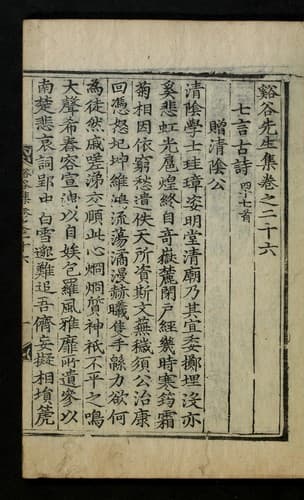 谿谷先生集卷之二十六
七言古詩 四十七首
贈清陰公
清陰學士珪璋姿明堂清廟乃其宜委擲埋沒亦
奚悲虹光麗煌終自奇嶽麓閉戶經幾時寒筠霜
菊相因依窮愁遺佚天所資斯文蕪穢須公治康
回憑怒圮坤維鴻流蕩潏漫赫曦隻手緜力欲何
為徒然戚嗟涕交頤此心炯炯質神祇不平之鳴
大聲希春容宣洩以自娭包羅風雅靡所遺參以
南楚悲哀詞郢中白雪邈難追吾儕妄擬相塤箎
谿谷集 卷之二十六 一